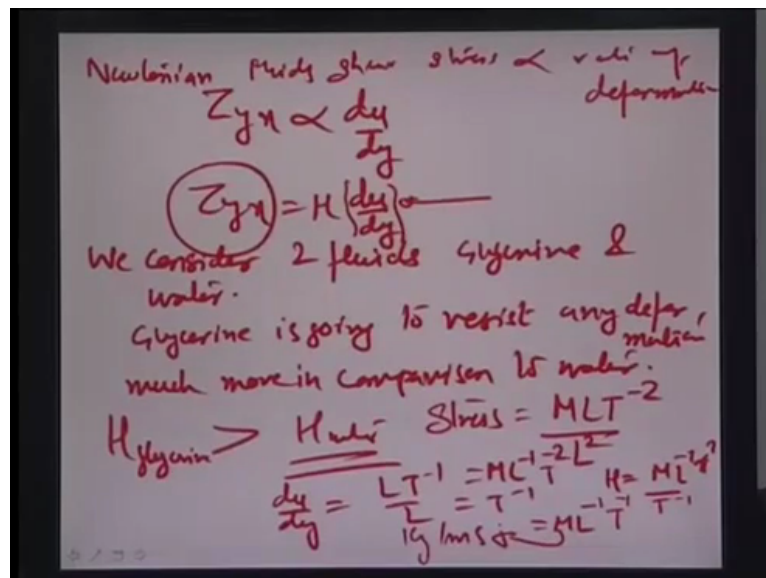 Newtonian fluids shear stress ∝ rate of
deformation
τyx ∝ du/dy
τyx = μ(du/dy)
We consider 2 fluids Glycerine &
water.
Glycerine is going to resist any defor
mation
much more in comparison to water.
μglycerin > μwater Stress = MLT⁻²/L²
= ML⁻¹T⁻²
du/dy = LT⁻¹/L = T⁻¹
μ = ML⁻¹T⁻²/T⁻¹
= ML⁻¹T⁻¹